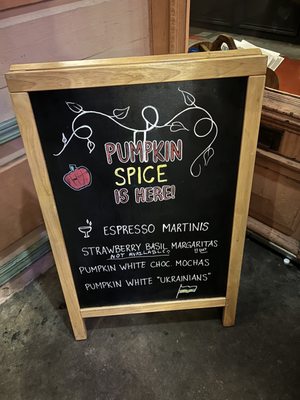 PUMPKIN
SPICE
IS HERE!
ESPRESSO MARTINIS
STRAWBERRY BASIL MARGARITAS
NOT AVAILABLE
PUMPKIN WHITE CHOC. MOCHAS
PUMPKIN WHITE "UKRAINIANS"